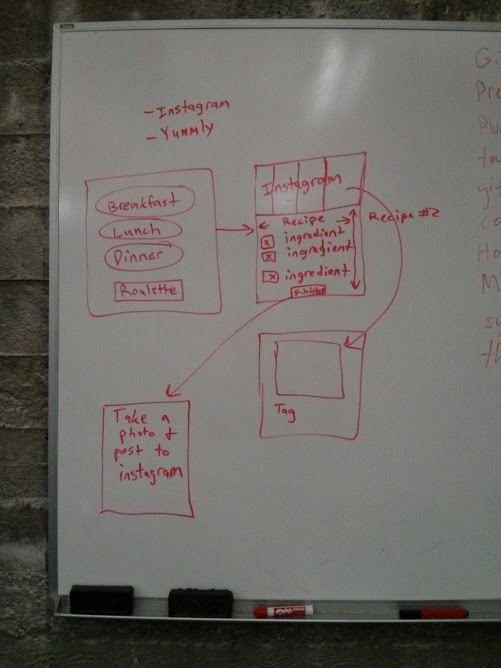 - Instagram
- Yummly
Breakfast
Lunch
Dinner
Roulette
Instagram
Recipe
x ingredient
x ingredient
x ingredient
Recipe #2
Tag
Take a
photo &
post to
instagram
Gi
Pre
Plu
gi
Ho
M
th